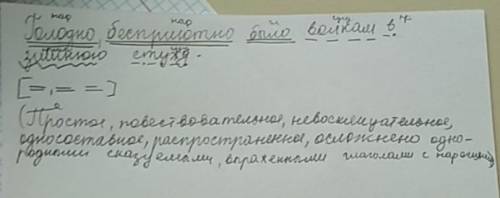 нар нар гл сущ
Голодно, бесприютно было волкам в
зимнюю стужу.
[=, = =]
(Простое, повествовательное, невосклицательное,
односоставное, распространенное, осложнено одно-
родными сказуемыми, выраженными глаголами с наречиями)